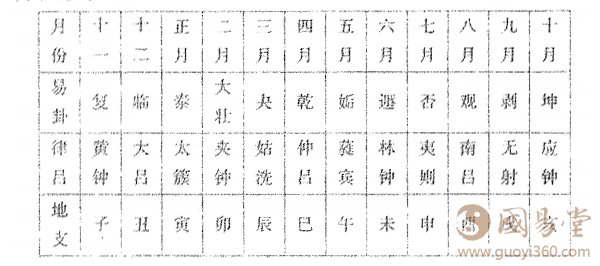 月份 十一 十二 正月 二月 三月 四月 五月 六月 七月 八月 九月 十月
易卦 复 临 泰 大壮 夬 乾 姤 遯 否 观 剥 坤
律吕 黄钟 大吕 太簇 夹钟 姑洗 仲吕 蕤宾 林钟 夷则 南吕 无射 应钟
地支 子 丑 寅 卯 辰 巳 午 未 申 酉 亥
國易堂
www.guoyi360.com